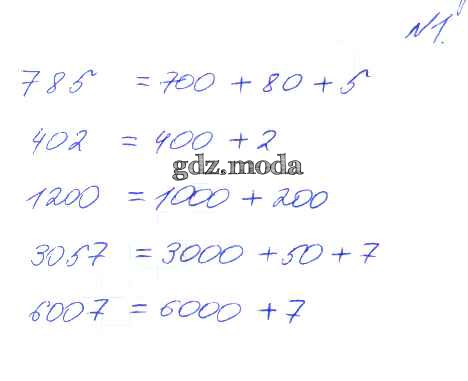 №1.
785 = 700 + 80 + 5
402 = 400 + 2
gdz.moda
1200 = 1000 + 200
3057 = 3000 + 50 + 7
6007 = 6000 + 7